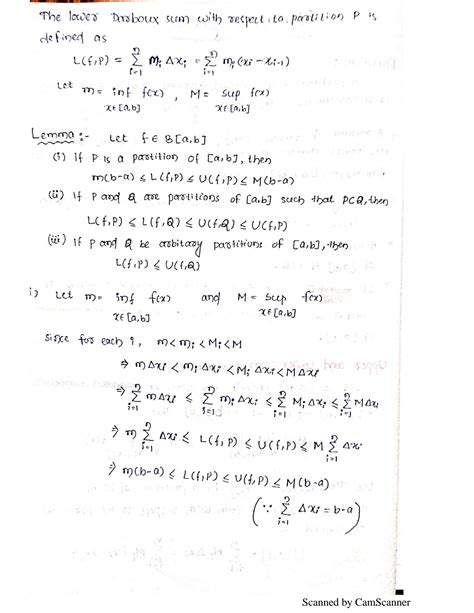 The lower Darboux sum with respect to partition P is
defined as
L(f,P) = Σ_{i=1}^{n} m_i Δx_i = Σ_{i=1}^{n} m_i (x_i - x_{i-1})
Let m = inf f(x) , M = sup f(x)
x∈[a,b] x∈[a,b]
Lemma :- Let f ∈ B[a,b]
(i) If P is a partition of [a,b], then
m(b-a) ≤ L(f,P) ≤ U(f,P) ≤ M(b-a)
(ii) If P and Q are partitions of [a,b] such that P⊂Q, then
L(f,P) ≤ L(f,Q) ≤ U(f,Q) ≤ U(f,P)
(iii) If P and Q be arbitary partitions of [a,b], then
L(f,P) ≤ U(f,Q)
i) Let m = inf f(x) and M = sup f(x)
x∈[a,b] x∈[a,b]
Since for each i, m < m_i < M_i < M
⇒ mΔx_i < m_i Δx_i < M_i Δx_i < MΔx_i
⇒ Σ_{i=1}^{n} mΔx_i ≤ Σ_{i=1}^{n} m_i Δx_i ≤ Σ_{i=1}^{n} M_i Δx_i ≤ Σ_{i=1}^{n} MΔx_i
⇒ m Σ_{i=1}^{n} Δx_i ≤ L(f,P) ≤ U(f,P) ≤ M Σ_{i=1}^{n} Δx_i
⇒ m(b-a) ≤ L(f,P) ≤ U(f,P) ≤ M(b-a)
(∵ Σ_{i=1}^{n} Δx_i = b-a)
Scanned by CamScanner